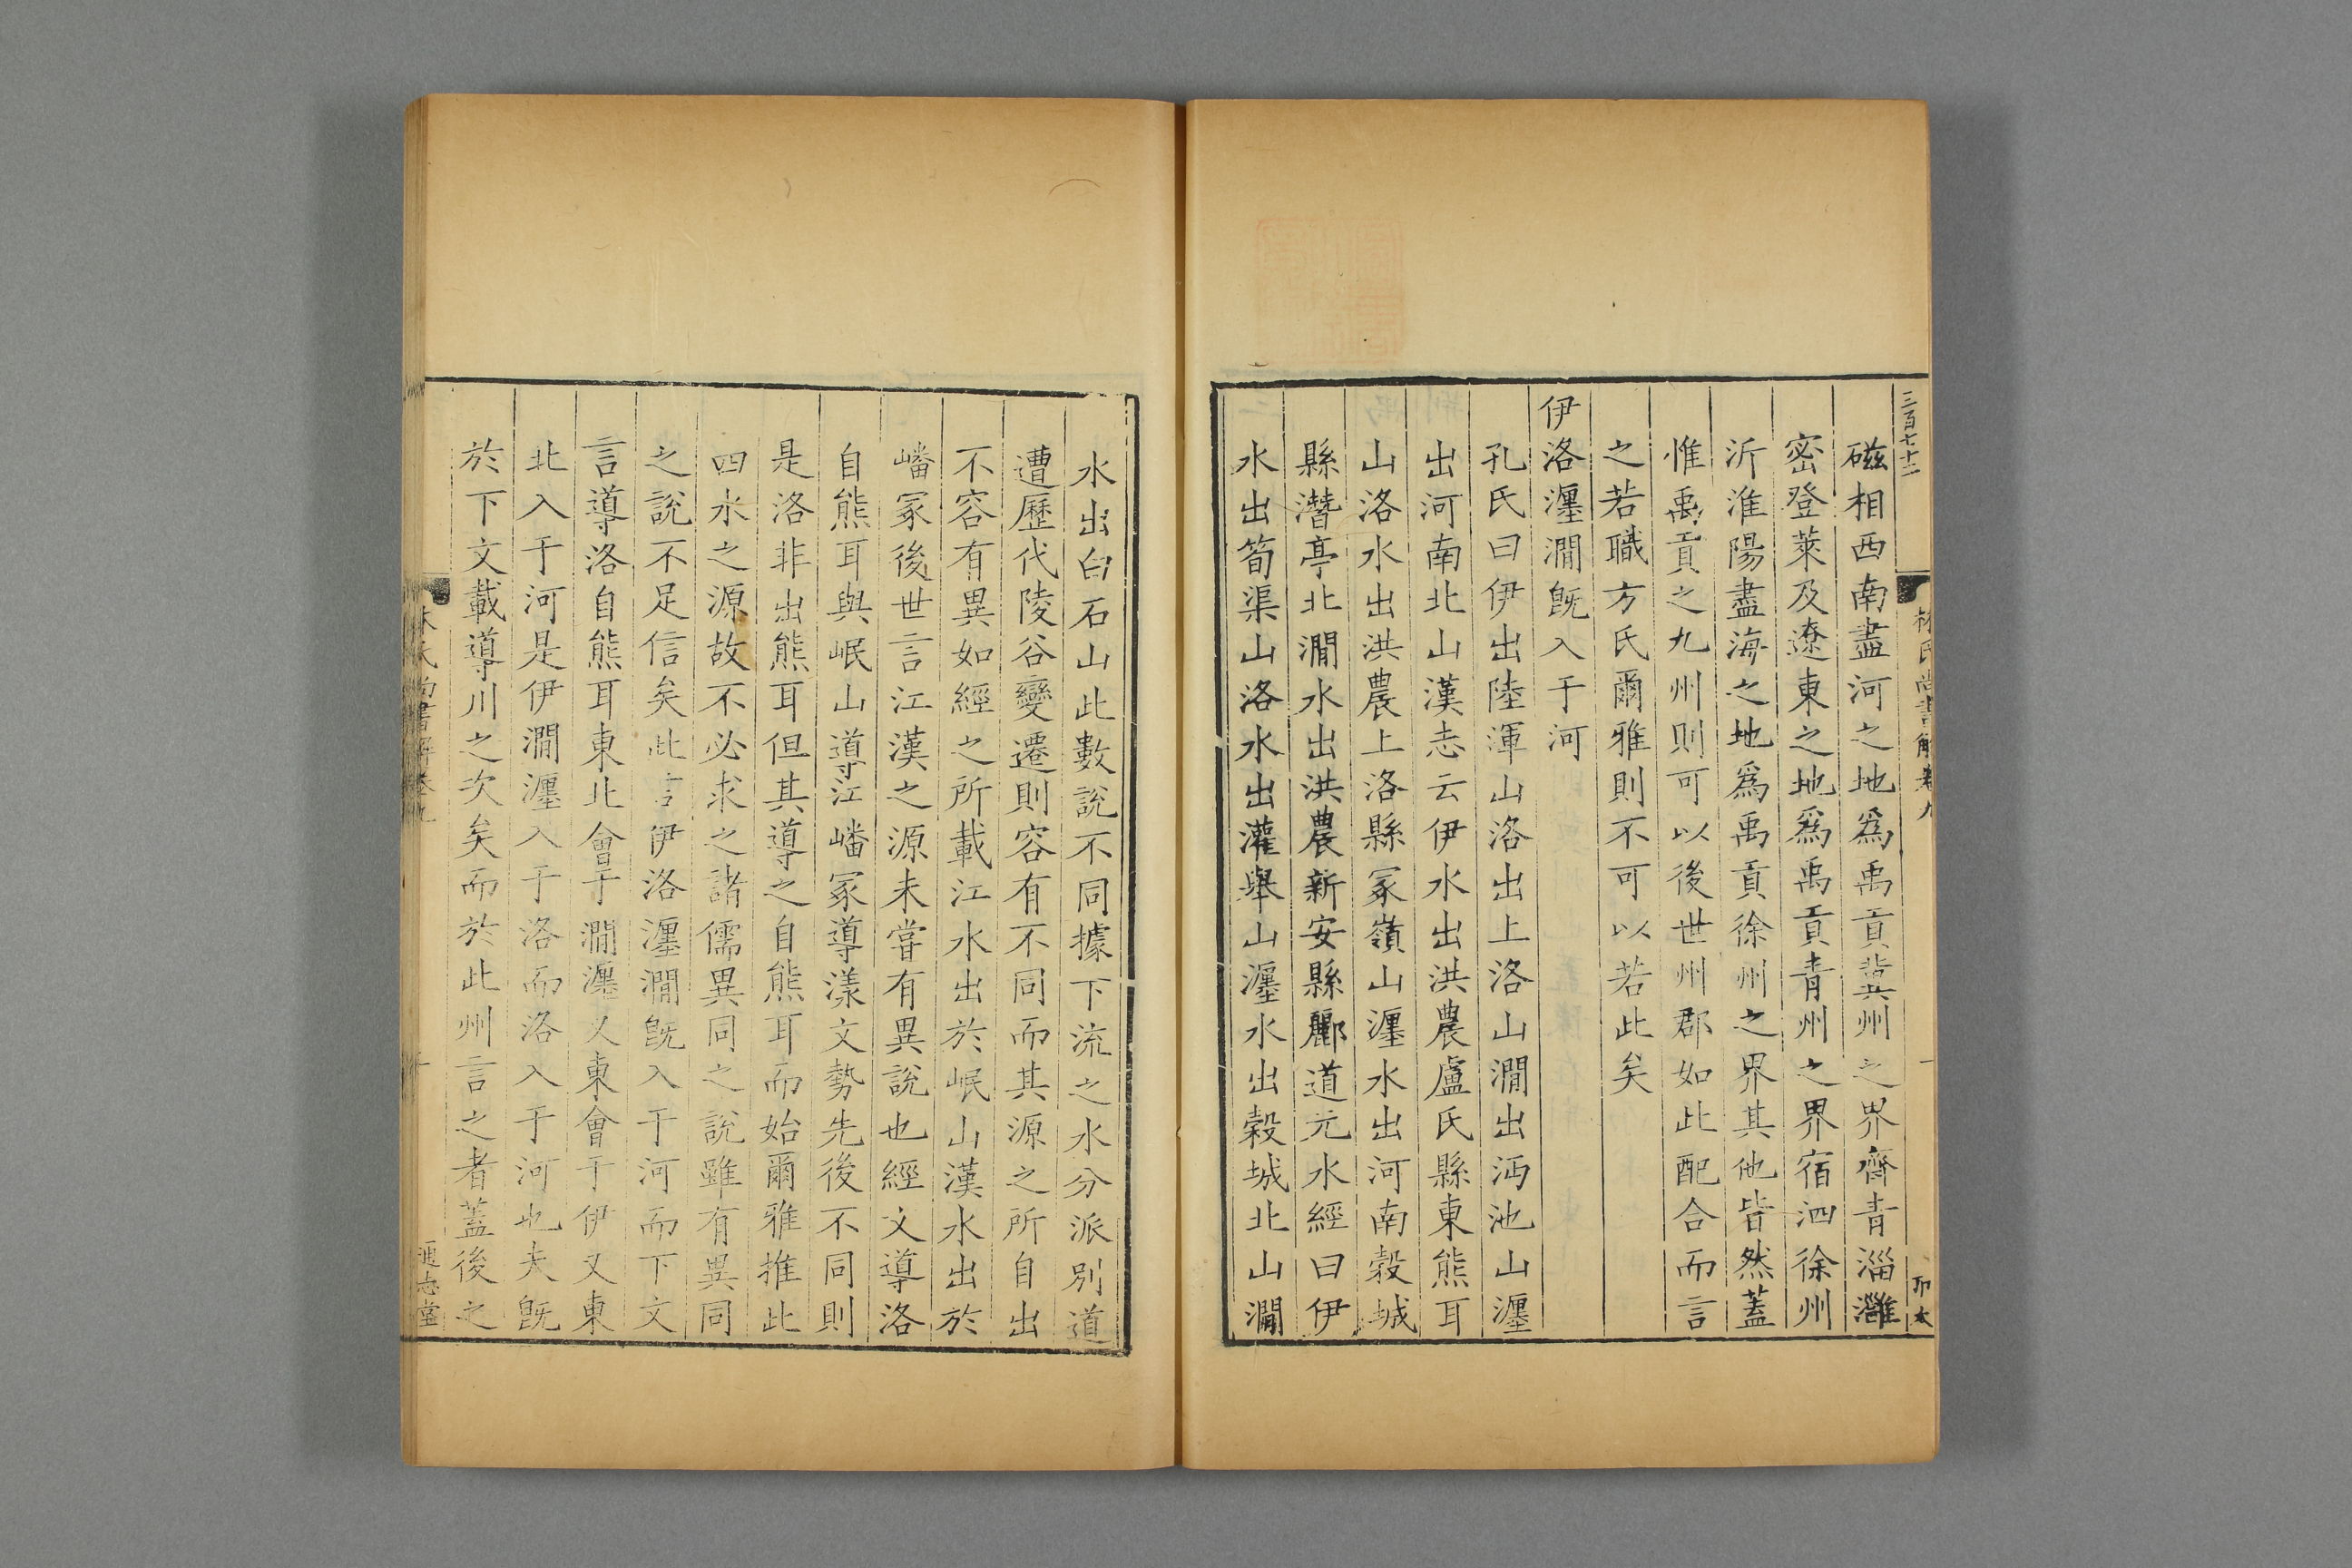 三百七十二
林氏尚書解卷九
磁相西南盡河之地爲禹貢冀州之界齊青淄濰
密登萊及遼東之地爲禹貢青州之界宿泗徐州
沂淮陽盡海之地爲禹貢徐州之界其他皆然蓋
惟禹貢之九州則可以後世州郡如此配合而言
之若職方氏爾雅則不可以若此矣
伊洛瀍澗旣入于河
孔氏曰伊出陸渾山洛出上洛山澗出沔池山瀍
出河南北山漢志云伊水出洪農盧氏縣東熊耳
山洛水出洪農上洛縣冢嶺山瀍水出河南穀城
縣潛亭北澗水出洪農新安縣酈道元水經曰伊
水出筍渠山洛水出灌舉山瀍水出穀城北山澗
水出白石山此數說不同據下流之水分派別道
遭歷代陵谷變遷則容有不同而其源之所自出
不容有異如經之所載江水出於岷山漢水出於
嶓冢後世言江漢之源未嘗有異說也經文導洛
自熊耳與岷山導江嶓冢導漾文勢先後不同則
是洛非出熊耳但其導之自熊耳而始爾雅推此
四水之源故不必求之諸儒異同之說雖有異同
之說不足信矣此言伊洛瀍澗旣入于河而下文
言導洛自熊耳東北會于澗瀍又東會于伊又東
北入于河是伊澗瀍入于洛而洛入于河也夫旣
於下文載導川之次矣而於此州言之者蓋後之
林氏尚書解卷九
十
通志堂